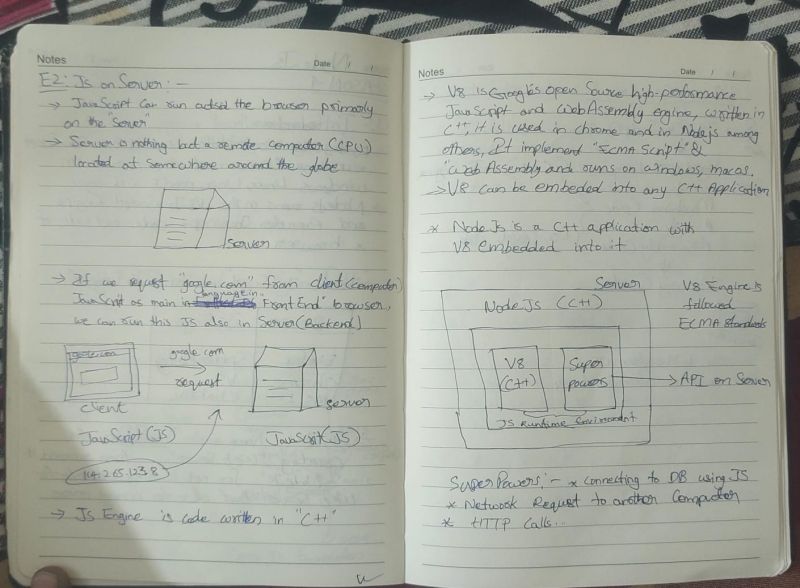 Notes
Date / /
E2: Js on Server :-
→ JavaScript can run outsid the browser primarly
on the "server"
→ Server is nothing but a remote computer (CPU)
located at somewhere around the globe
server
→ If we request "google.com" from client (computer)
JavaScript as main language in FrontEnd" browser,
we can run this JS also in Server (Backend)
google.com
google.com
request
client
server
JavaScript (JS)
JavaScrit (JS)
104.265.123.8
→ Js Engine is code written in "C++"
Notes
Date / /
→ V8 is Google's open Source high-performance
JavaScript and WebAssembly engine, written in
C++, it is used in chrome and in Nodejs among
others, It implement "ECMA Script" &
"Web Assembly and runs on windows, macos.
→ V8 can be embeded into any C++ Application
* Node Js is a C++ application with
V8 embedded into it
Server
Node Js (C++)
V8 Engine is
followed
ECMA Standards
V8
(C++)
Super
powers
→ API on Server
JS Runtime Enviroment
Super Powers :- * connecting to DB using JS
* Network Request to another Computer
* HTTP Calls...